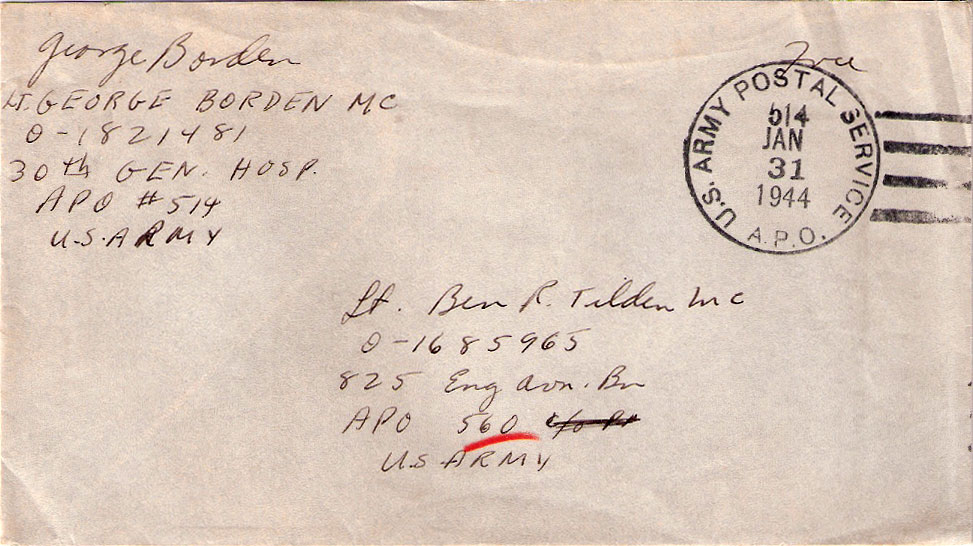 George Borden
Lt. GEORGE BORDEN MC
O-1821481
30th GEN. HOSP.
APO #514
U.S. ARMY
Free
U.S. ARMY POSTAL SERVICE
514
JAN
31
1944
A.P.O.
Lt. Ben R. Tilden MC
O-1685965
825 Eng Avn. Bn
APO 560 c/o
U.S ARMY